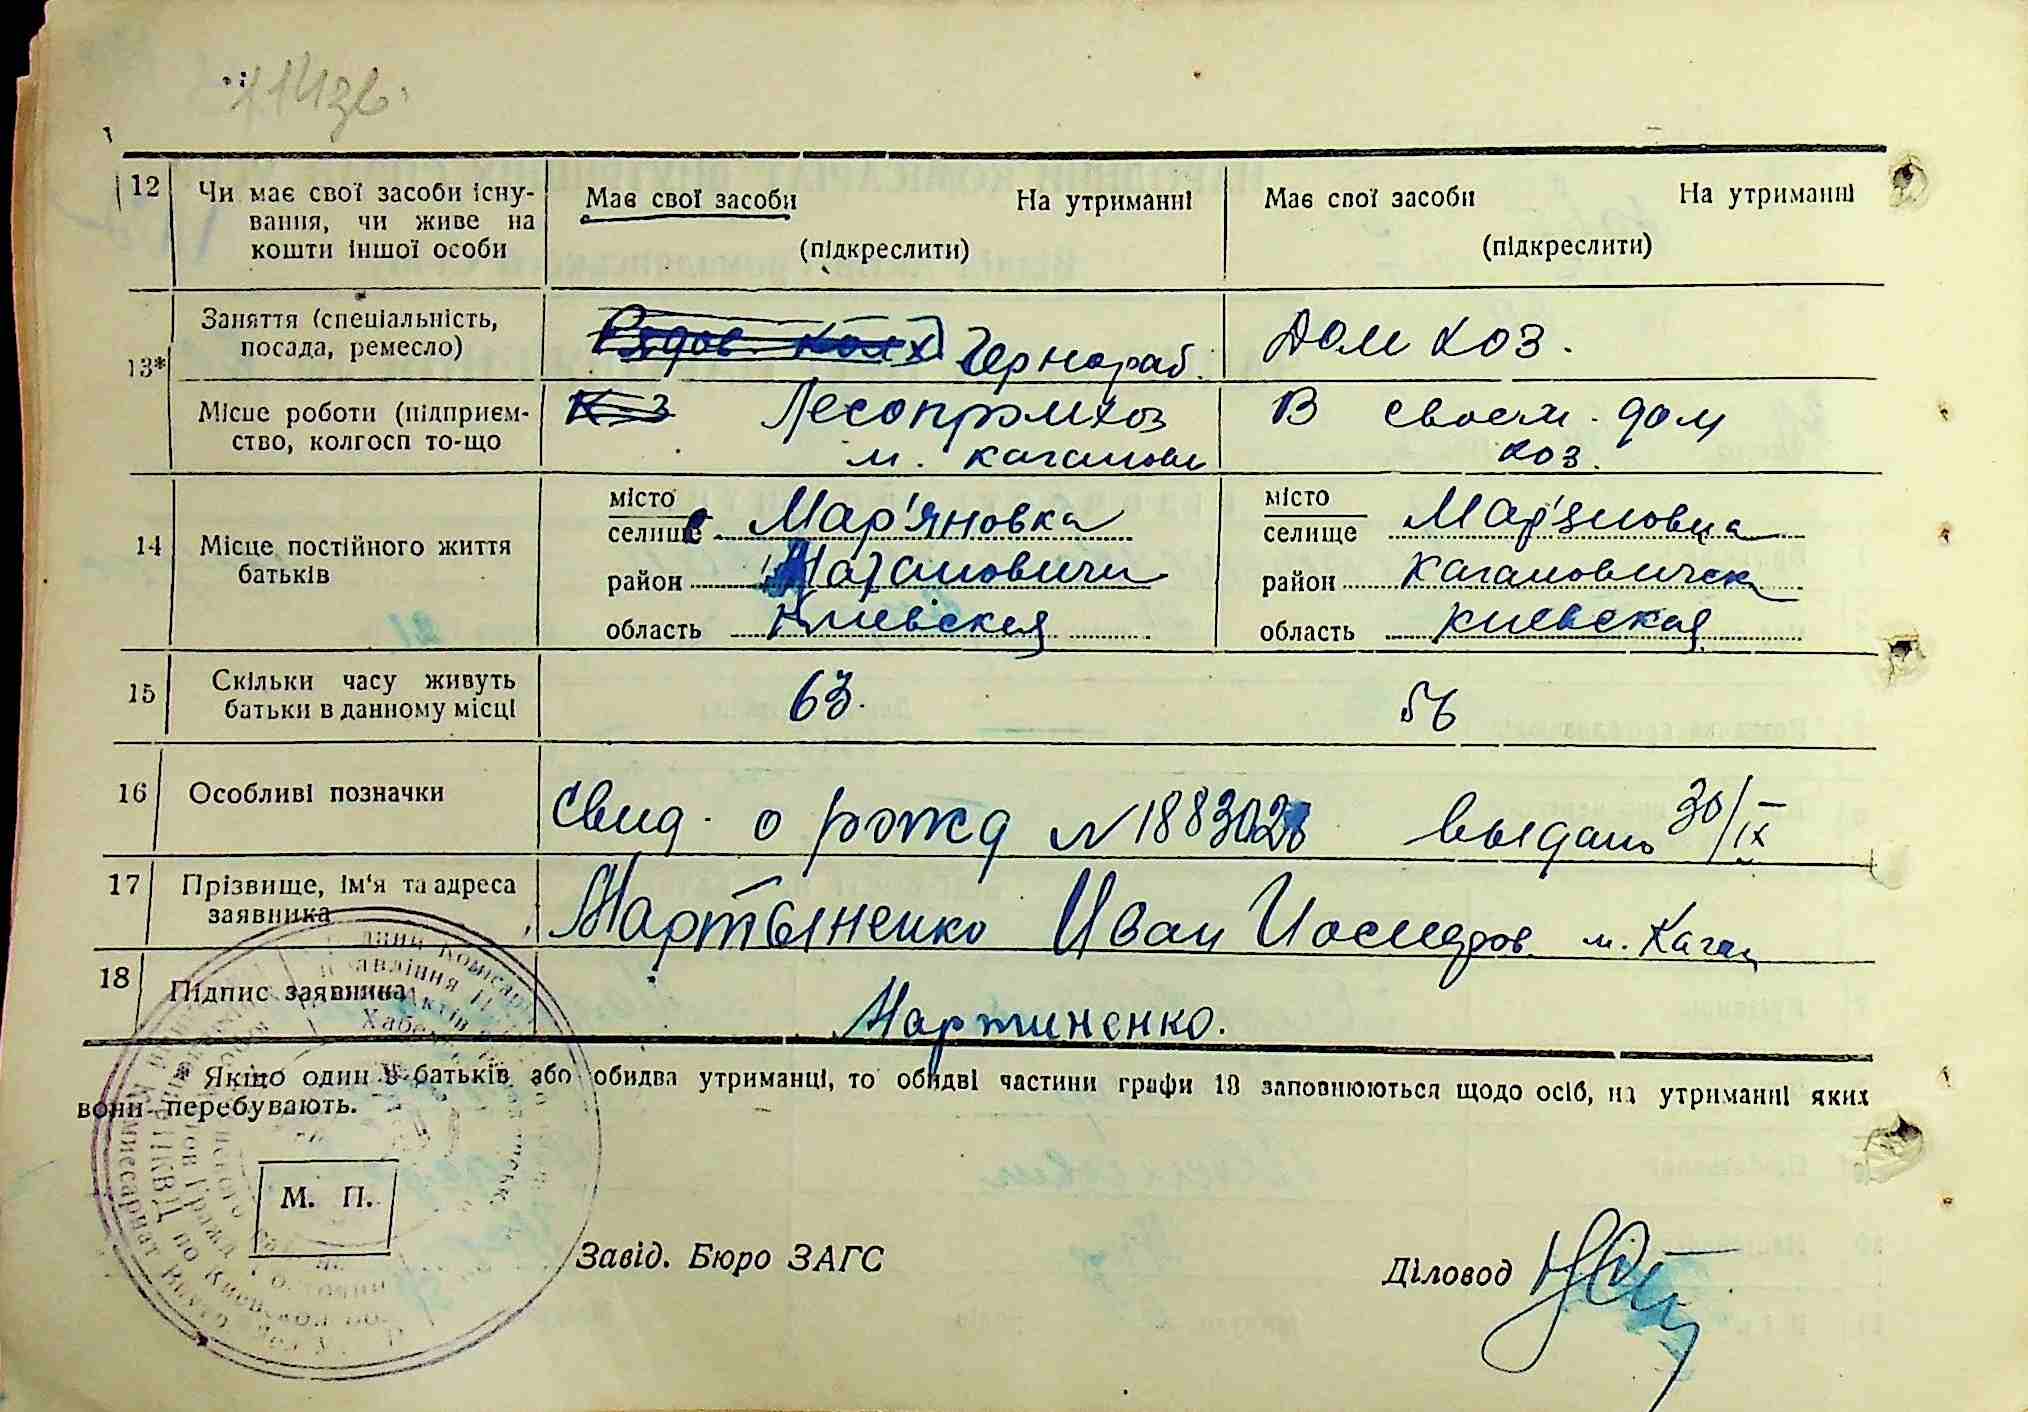 12 Чи має свої засоби існу-
вання, чи живе на
кошти іншої особи
Має свої засоби На утриманні
(підкреслити)
Має свої засоби На утриманні
(підкреслити)
13*
Заняття (спеціальність,
посада, ремесло)
Чернораб.
Дом хоз.
Місце роботи (підприєм-
ство, колгосп то-що
Лесопромхоз
м. Каганови
В своем. дом
хоз.
14 Місце постійного життя
батьків
місто
селище Мар'яновка
район Кагановичи
область Киевская
місто
селище Мар'яновка
район Кагановическ
область Киевская
15 Скільки часу живуть
батьки в данному місці
63.
56
16 Особливі позначки
Свид. о рожд N 1883028 выдано 30/IX
17 Прізвище, ім'я та адреса
заявника
Мартыненко Иван м. Каган
18 Підпис заявника
Мартиненко.
* Якщо один з батьків або обидва утриманці, то обидві частини графи 13 заповнюються щодо осіб, на утриманні яких
вони перебувають.
М. П.
Завід. Бюро ЗАГС
Діловод